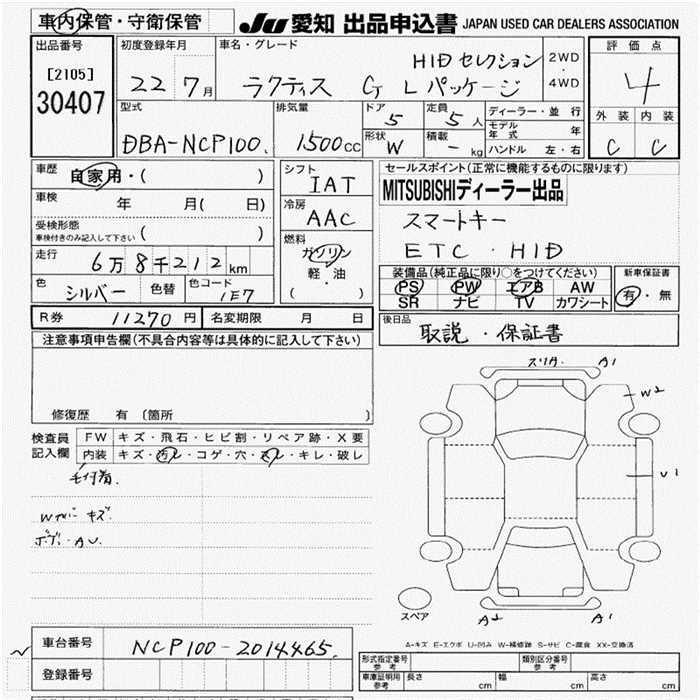 車内保管・守衛保管 JU 愛知 出品申込書 JAPAN USED CAR DEALERS ASSOCIATION
出品番号 初度登録年月 車名・グレード 評価点
[2105] HID セレクション 2WD
30407 22 7月 ラクティス G L パッケージ ・ 4WD 4
型式 排気量 ドア 5 定員 5人 ディーラー・並行 外装 内装
DBA-NCP100. 1500cc 形状 W 積載 - kg モデル年式 年 C C
ハンドル 左・右
車歴 自家用・( ) シフト IAT セールスポイント(正常に機能するものに限ります)
車検 年 月( 日) 冷房 AAC MITSUBISHIディーラー出品
受検形態 ( ) スマートキー
車検付きのみ記入して下さい
走行 6万8千212km 燃料 ガソリン ETC・HID
軽・油
( )
装備品(純正品に限り○をつけてください) 新車保証書
色 シルバー 色替 色コード 1E7 PS PW エアB AW 有・無
SR ナビ TV カワシート
R券 11270円 名変期限 月 日 後日品
取説・保証書
注意事項申告欄(不具合内容等は具体的に記入して下さい)
修復歴 有 〔箇所 〕
検査員記入欄 FW キズ・飛石・ヒビ割・リペア跡・X要
内装 キズ・汚レ・コゲ・穴・スレ・キレ・破レ
毛付着.
キズ.
A1
W2
U1
スペア A2 A1
A-キズ E-エクボ U-凹み W-補修跡 S-サビ C-腐食 XX-交換済
車台番号 NCP100-2014465.
登録番号
形式指定番号 参考 類別区分番号 参考
車庫証明用 参考 長さ cm 幅 cm 高さ cm